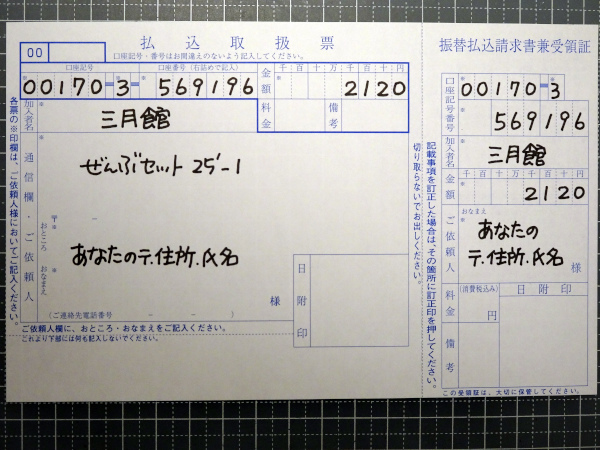 00
払込取扱票
口座記号・番号はお間違えのないよう記入してください。
口座記号 口座番号(右詰めで記入)
00170-3 569196
金額 千百十万千百十円
2120
加入者名 三月館
料金 備考
通信欄・ご依頼人
ぜんぶセット 25'-1
〒 -
おところ
おなまえ
あなたの〒.住所.氏名
様
(ご連絡先電話番号 - - )
日附印
ご依頼人欄に、おところ・おなまえをご記入ください。
これより下部には何も記入しないでください。
各票の※印欄は、ご依頼人様においてご記入ください。
切り取らないでお出しください。
記載事項を訂正した場合は、その箇所に訂正印を押してください。
振替払込請求書兼受領証
口座記号番号
00170-3
569196
加入者名 三月館
金額 千百十万千百十円
2120
ご依頼人
おなまえ
あなたの
〒.住所.氏名
様
料金 (消費税込み) 円
日附印
備考
この受領証は、大切に保管してください。